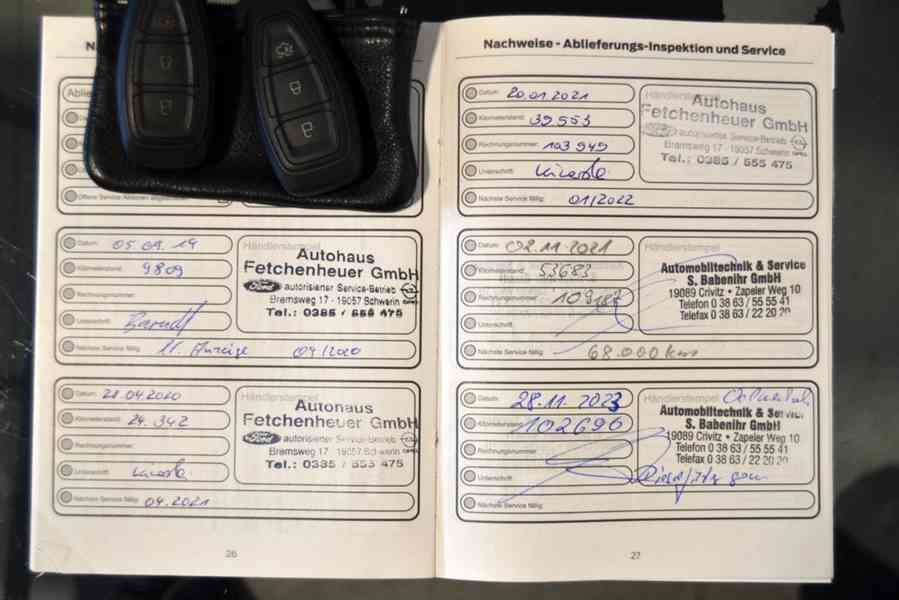 Nachweise - Ablieferungs-Inspektion und Service
Datum: 05.09.19
Kilometerstand: 9809
Rechnungsnummer:
Unterschrift:
Nächste Service fällig: lt. Anzeige 04/2020
Händlerstempel
Autohaus
Fetchenheuer GmbH
Ford autorisierter Service-Betrieb
Bremsweg 17 - 19057 Schwerin
Tel.: 0385 / 555 475
Datum: 28.04.2020
Kilometerstand: 24.342
Rechnungsnummer:
Unterschrift:
Nächste Service fällig: 04.2021
Händlerstempel
Autohaus
Fetchenheuer GmbH
Ford autorisierter Service-Betrieb
Bremsweg 17 - 19057 Schwerin
Tel.: 0385 / 555 475
26
Datum: 20.01.2021
Kilometerstand: 39553
Rechnungsnummer: 103949
Unterschrift:
Nächste Service fällig: 01/2022
Händlerstempel
Autohaus
Fetchenheuer GmbH
autorisierter Service-Betrieb
Bremsweg 17 - 19057 Schwerin
Tel.: 0385 / 555 475
Datum: 02.11.2021
Kilometerstand: 53683
Rechnungsnummer:
Unterschrift:
Nächste Service fällig: 68.000 km
Händlerstempel
Automobiltechnik & Service
S. Babenihr GmbH
19089 Crivitz • Zapeler Weg 10
Telefon 0 38 63 / 55 55 41
Telefax 0 38 63 / 22 20 20
Datum: 28.11.2023
Kilometerstand: 102690
Rechnungsnummer:
Unterschrift:
Nächste Service fällig:
Händlerstempel
Automobiltechnik & Service
S. Babenihr GmbH
19089 Crivitz • Zapeler Weg 10
Telefon 0 38 63 / 55 55 41
Telefax 0 38 63 / 22 20 20
27